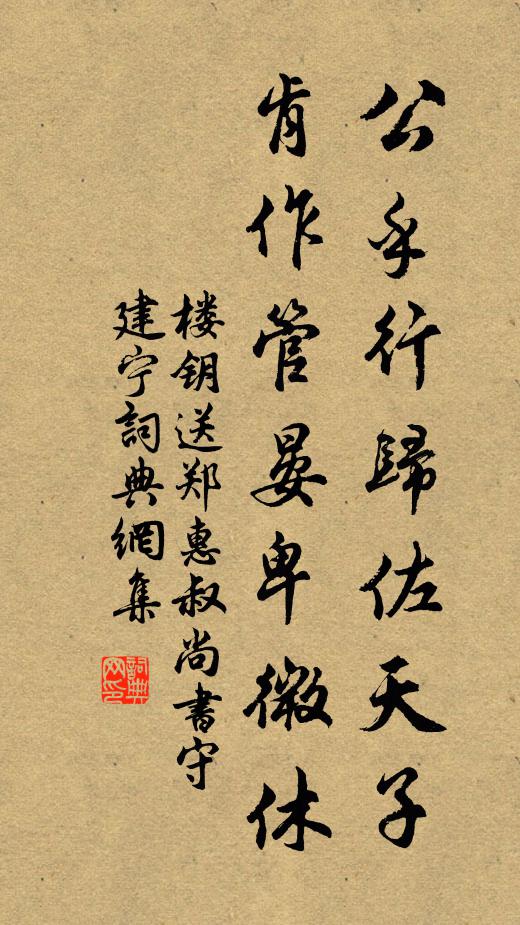 公乎行歸佐天子
肯作管晏卑微休
楼钥送郑惠叔尚書守
建宁詞典網集
詞典網印